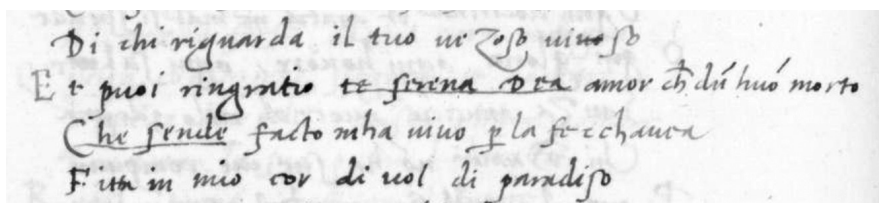 Di chi riguarda il tuo uezoso uiuoso
Et puoi ringratio te serena dea amor ch̄ dū huō morto
Che sende facto mha uiuo p̲ la fecchauea
Fitta in mio cor di uol di paradiso